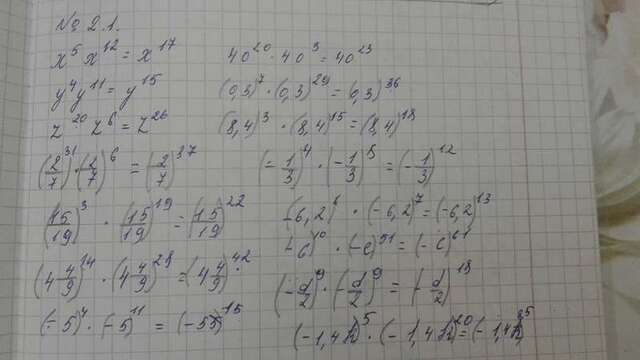 № 2.1.
x⁵ x¹² = x¹⁷
y⁴ y¹¹ = y¹⁵
z²⁰ z⁶ = z²⁶
(2/7)³¹ · (2/7)⁶ = (2/7)³⁷
(15/19)³ · (15/19)¹⁹ = (15/19)²²
(4 4/9)¹⁴ · (4 4/9)²⁸ = (4 4/9)⁴²
(-5)⁴ · (-5)¹¹ = (-55)¹⁵
40²⁰ · 40³ = 40²³
(0,3)⁷ · (0,3)²⁹ = (0,3)³⁶
(8,4)³ · (8,4)¹⁵ = (8,4)¹⁸
(-1/3)⁴ · (-1/3)⁸ = (-1/3)¹²
-6,2)⁶ · (-6,2)⁷ = (-6,2)¹³
-c)¹⁰ · (-c)⁵¹ = (-c)⁶¹
(-d/2)⁹ · (-d/2)⁹ = (-d/2)¹⁸
(-1,4h)⁵ · (-1,4h)²⁰ = (-1,4h)²⁵